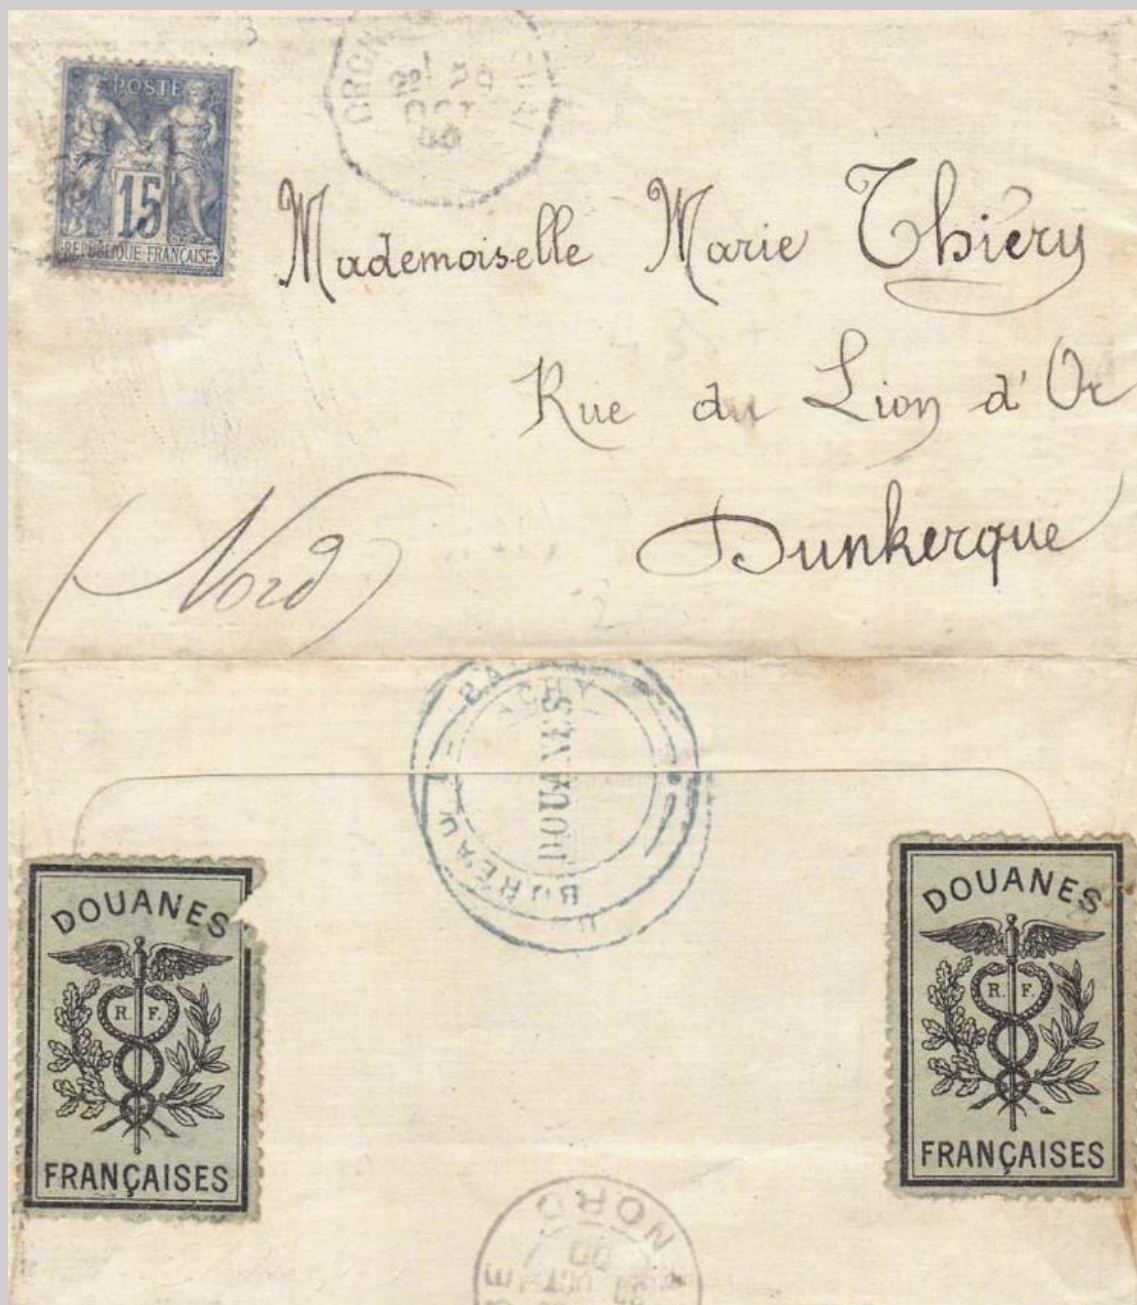 POSTE
15
REPUBLIQUE FRANÇAISE
Mademoiselle Marie Thiéry
Rue du Lion d'Or
Dunkerque
(Nord)
DOUANES
BUREAU
DOUANES
R. F.
FRANÇAISES
DOUANES
R. F.
FRANÇAISES
NORD